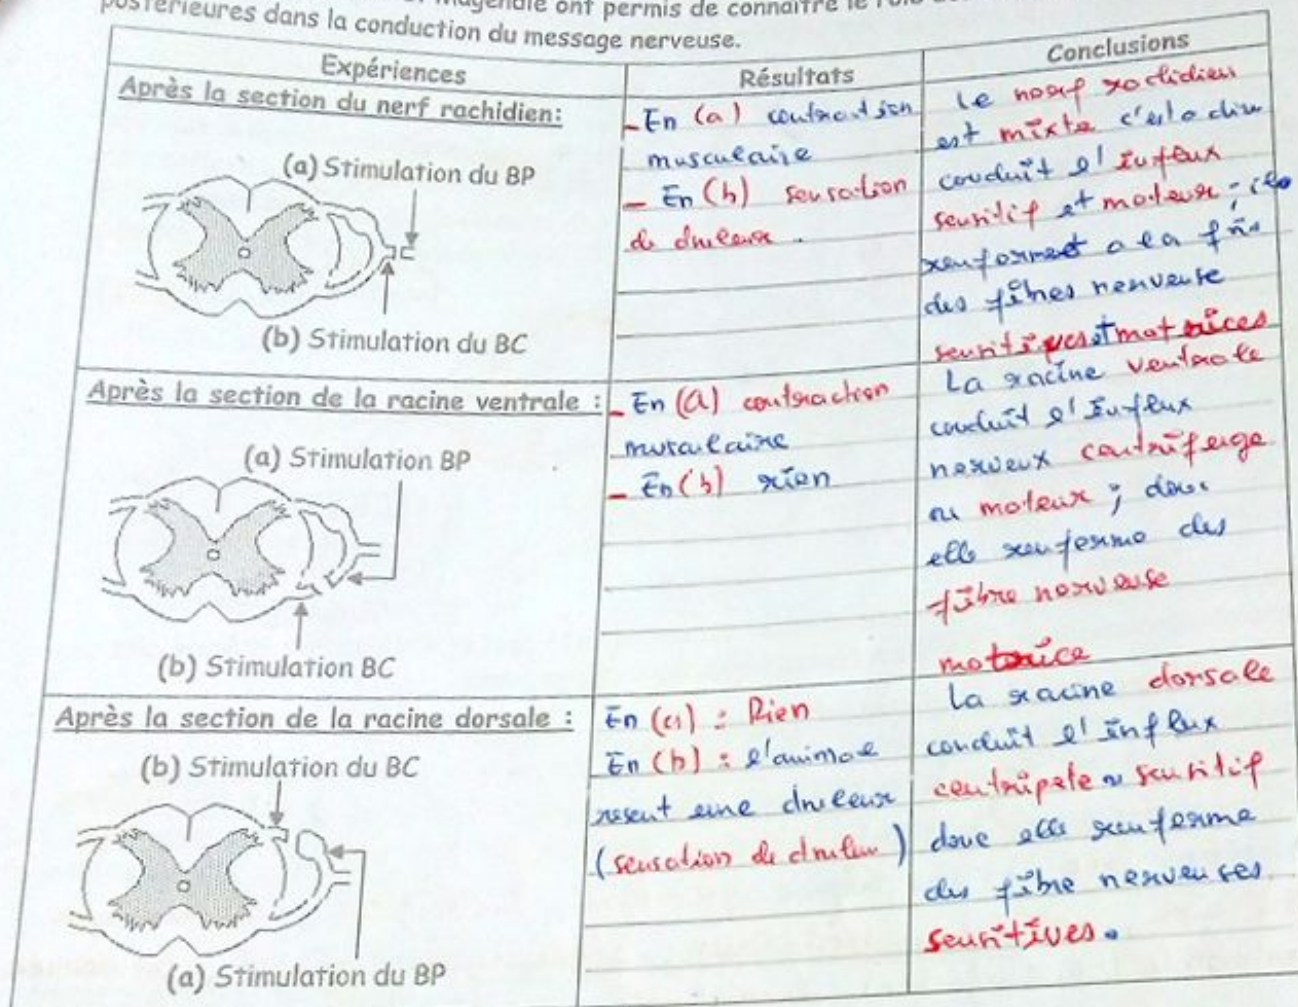 Magendie ont permis de connaître le
postérieures dans la conduction du message nerveuse.
Expériences
Résultats
Conclusions
Après la section du nerf rachidien:
(a) Stimulation du BP
(b) Stimulation du BC
- En (a) contraction
musculaire
- En (b) sensation
de douleur.
Le nerf rachidien
est mixte c'est a dire
conduit l'influx
sensitif et moteur ;
renferment a la fois
des fibres nerveuse
sensitives et motrices
Après la section de la racine ventrale :
(a) Stimulation BP
(b) Stimulation BC
- En (a) contraction
musculaire
- En (b) rien
La racine ventrale
conduit l'influx
nerveux centrifuge
ou moteur ; donc
elle renferme des
fibre nerveuse
motrice
Après la section de la racine dorsale :
(b) Stimulation du BC
(a) Stimulation du BP
En (a) : Rien
En (b) : l'animal
resent une douleur
(sensation de douleur)
La racine dorsale
conduit l'influx
centripete ou sensitif
donc elle renferme
des fibre nerveuses
sensitives.